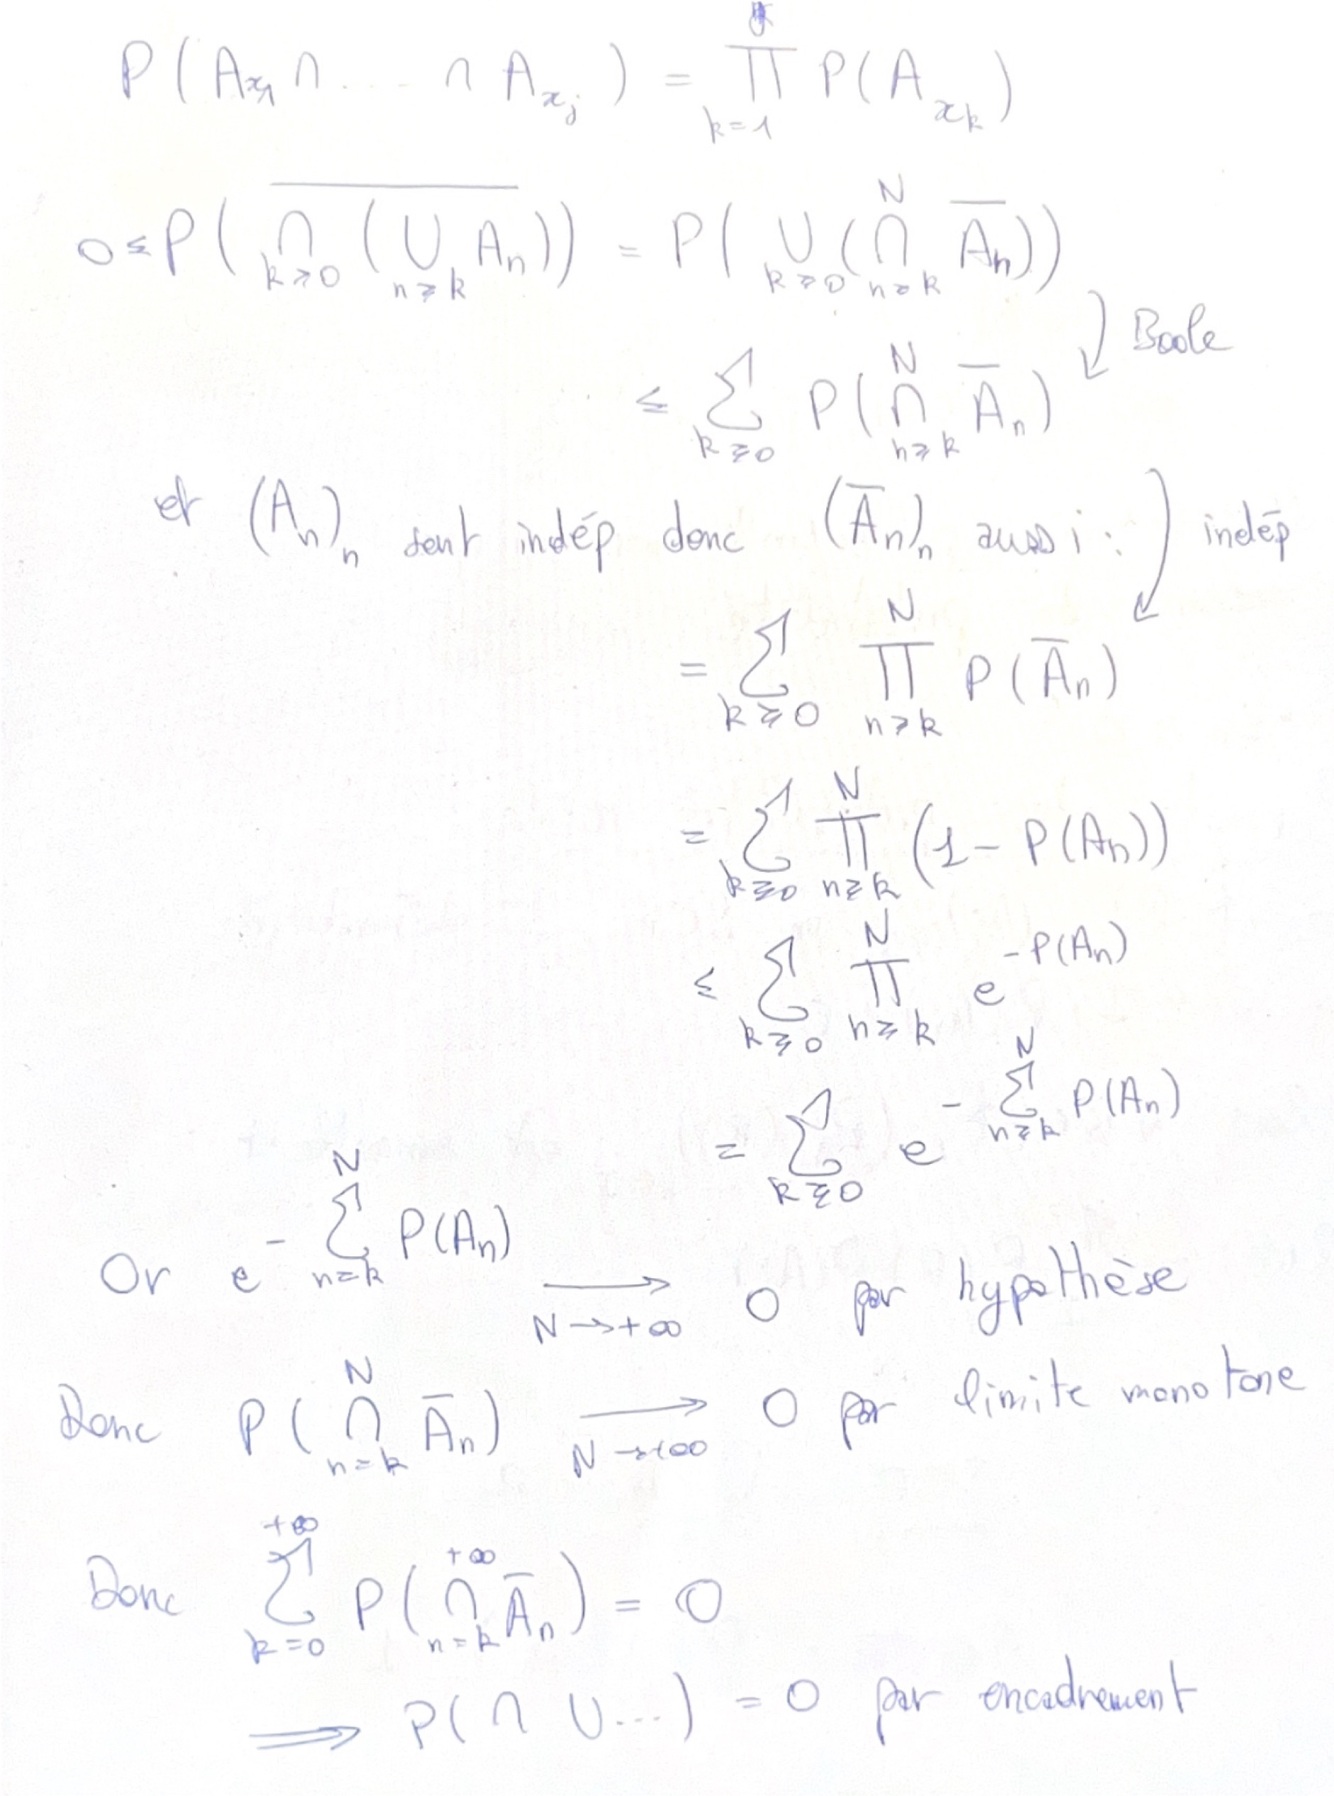 P(A_{x_1} ∩ ... ∩ A_{x_j}) = ∏_{k=1}^{j} P(A_{x_k})
0 ≤ P(\overline{∩_{k≥0} (∪_{n≥k} A_n)}) = P(∪_{k≥0} (∩_{n≥k}^{N} \overline{A_n}))
≤ ∑_{k≥0} P(∩_{n≥k}^{N} \overline{A}_n) Boole
et (A_n)_n sont indép donc (\overline{A}_n)_n aussi : indép
= ∑_{k≥0} ∏_{n≥k}^{N} P(\overline{A}_n)
= ∑_{k≥0} ∏_{n≥k}^{N} (1 - P(A_n))
≤ ∑_{k≥0} ∏_{n≥k}^{N} e^{-P(A_n)}
= ∑_{k≥0} e^{-∑_{n≥k}^{N} P(A_n)}
Or e^{-∑_{n=k}^{N} P(A_n)} ⟶_{N→+∞} 0 par hypothèse
Donc P(∩_{n=k}^{N} \overline{A}_n) ⟶_{N→+∞} 0 par limite monotone
Donc ∑_{k=0}^{+∞} P(∩_{n=k}^{+∞} \overline{A}_n) = 0
⟹ P(∩ ∪ ...) = 0 par encadrement